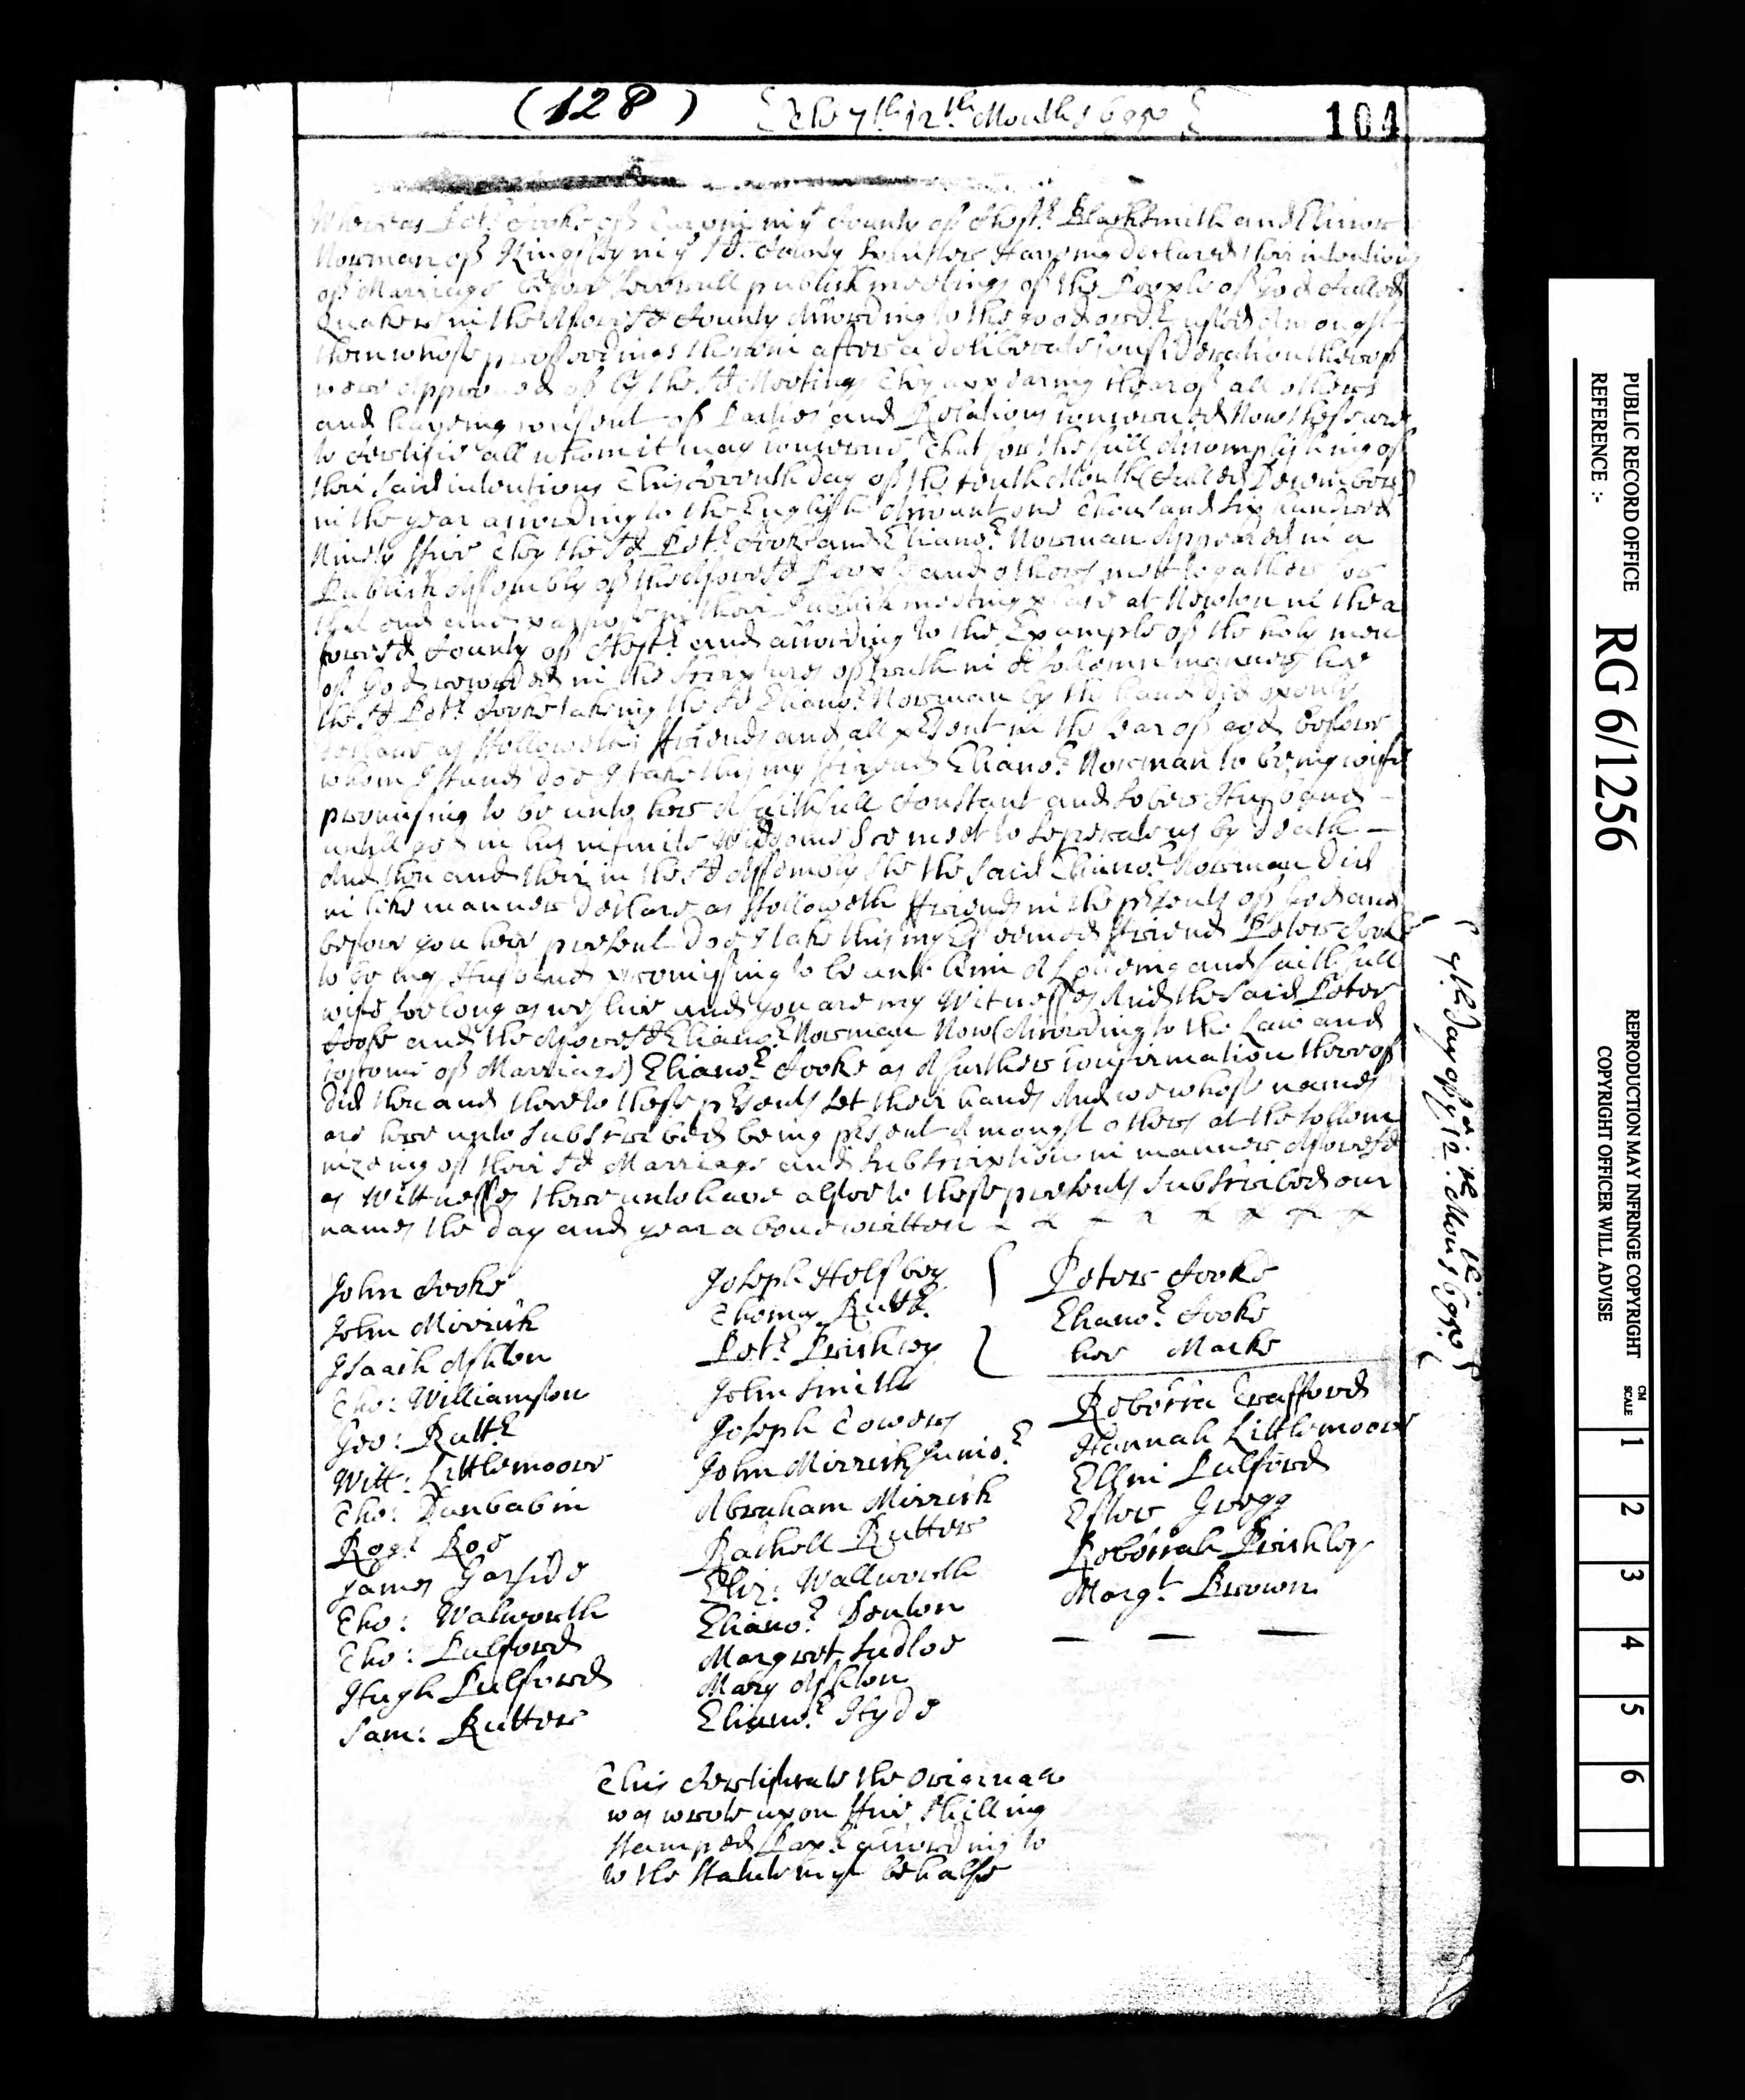 (128) The 7th 12th Month 1695 104
Whereas Petr Cooke of in ye County of Chestr Blacksmith and Elinor
Norman of Kingsley in ye sd County Spinster Haveing declared their intentions
of Marriage before severall publick meetings of the People of God Called
Quakers in the Aforesd County According to the good ordr used Amongst
them whose proceedings therein after a deliberate consideration thereof
were approved of by the sd Meetings they appearing Clear of all others
and haveing consent of Parties and Relations concerned Now these are
to Certifie all whom it may concerne That for the full Accomplishing of
their said intentions This seventh day of the tenth Month (Called December)
in the year according to the English Account one Thousand six hundred
Ninety ffive They the sd Petr Cooke and Elianor Norman Appeared in a
Publick Assembly of the Aforesd People and others mett together for
that end and purpose in their Publick meeting place at Newton in the a
foresd County of Chestr and according to the Example of the holy men
of God recorded in the Scriptures of truth in A sollemn manner hee
the sd Petr Cooke takeing the sd Elianor Norman by the hand did openly
declare as ffolloweth ffriends and all psent in the fear of god before
whom I stand doe I take this my ffriend Elianor Norman to be my wife
promising to be unto her A faithfull Constant and sober Husband –
untill god in his infinite Widsome see meet to seperate us by death –
And then and their in the sd Assembly she the said Elianor Norman did
in like manner declare as ffolloweth ffriends in the psents of God and
before you here present doe I take this my Esteemed ffriend Peter Cooke
to be my Husband promissing to be unto him A Loveing and faithfull
wife soe long as we live and you are my Witnesses And the said Peter
Cooke and the Aforesd Elianor Norman Now (According to the Law and
Custome of Marriage) Elianor Cooke as A further confirmation thereof
did then and there to these psents set their hands And we whose names
are here unto subscribed being psent Amongst others at the sollem
nizeing of their sd Marriage and subscription in manner Aforesd
as Wittnesses thereunto have alsoe to these presents subscribed our
names the day and year above written
John Cooke
John Mirrick
Isaach Ashton
Tho: Williamson
Geo: Ruttr
Will: Littlemoore
Tho: Dunbabin
Rogr Roe
James Garside
Tho: Walworth
Tho: Pulford
Hugh Pulford
Sam: Rutter
Joseph Helsbey
Thomas Ruttr
Petr Prickley
John Smith
Joseph Towers
John Mirrick Junior
Abraham Mirrick
Rachell Rutter
Eliz: Wallworth
Elianor Denton
Margret Sudloe
Mary Ashton
Elianor Hyde
Peter Cooke
Elianor Cooke
her Marke
Rebecca Trafford
Hannah Littlemoore
Ellin Pulford
Ester Gregg
Rebeccah Prickley
Margt Brown
This Certificate the Originall
was wrote upon ffive Shilling
Stamped Papr according to
to the Statute in yt behalfe
7th day of ye 12th Mont 1695
PUBLIC RECORD OFFICE
REFERENCE :-
RG 6/1256
REPRODUCTION MAY INFRINGE COPYRIGHT
COPYRIGHT OFFICER WILL ADVISE
CM
SCALE
1
2
3
4
5
6